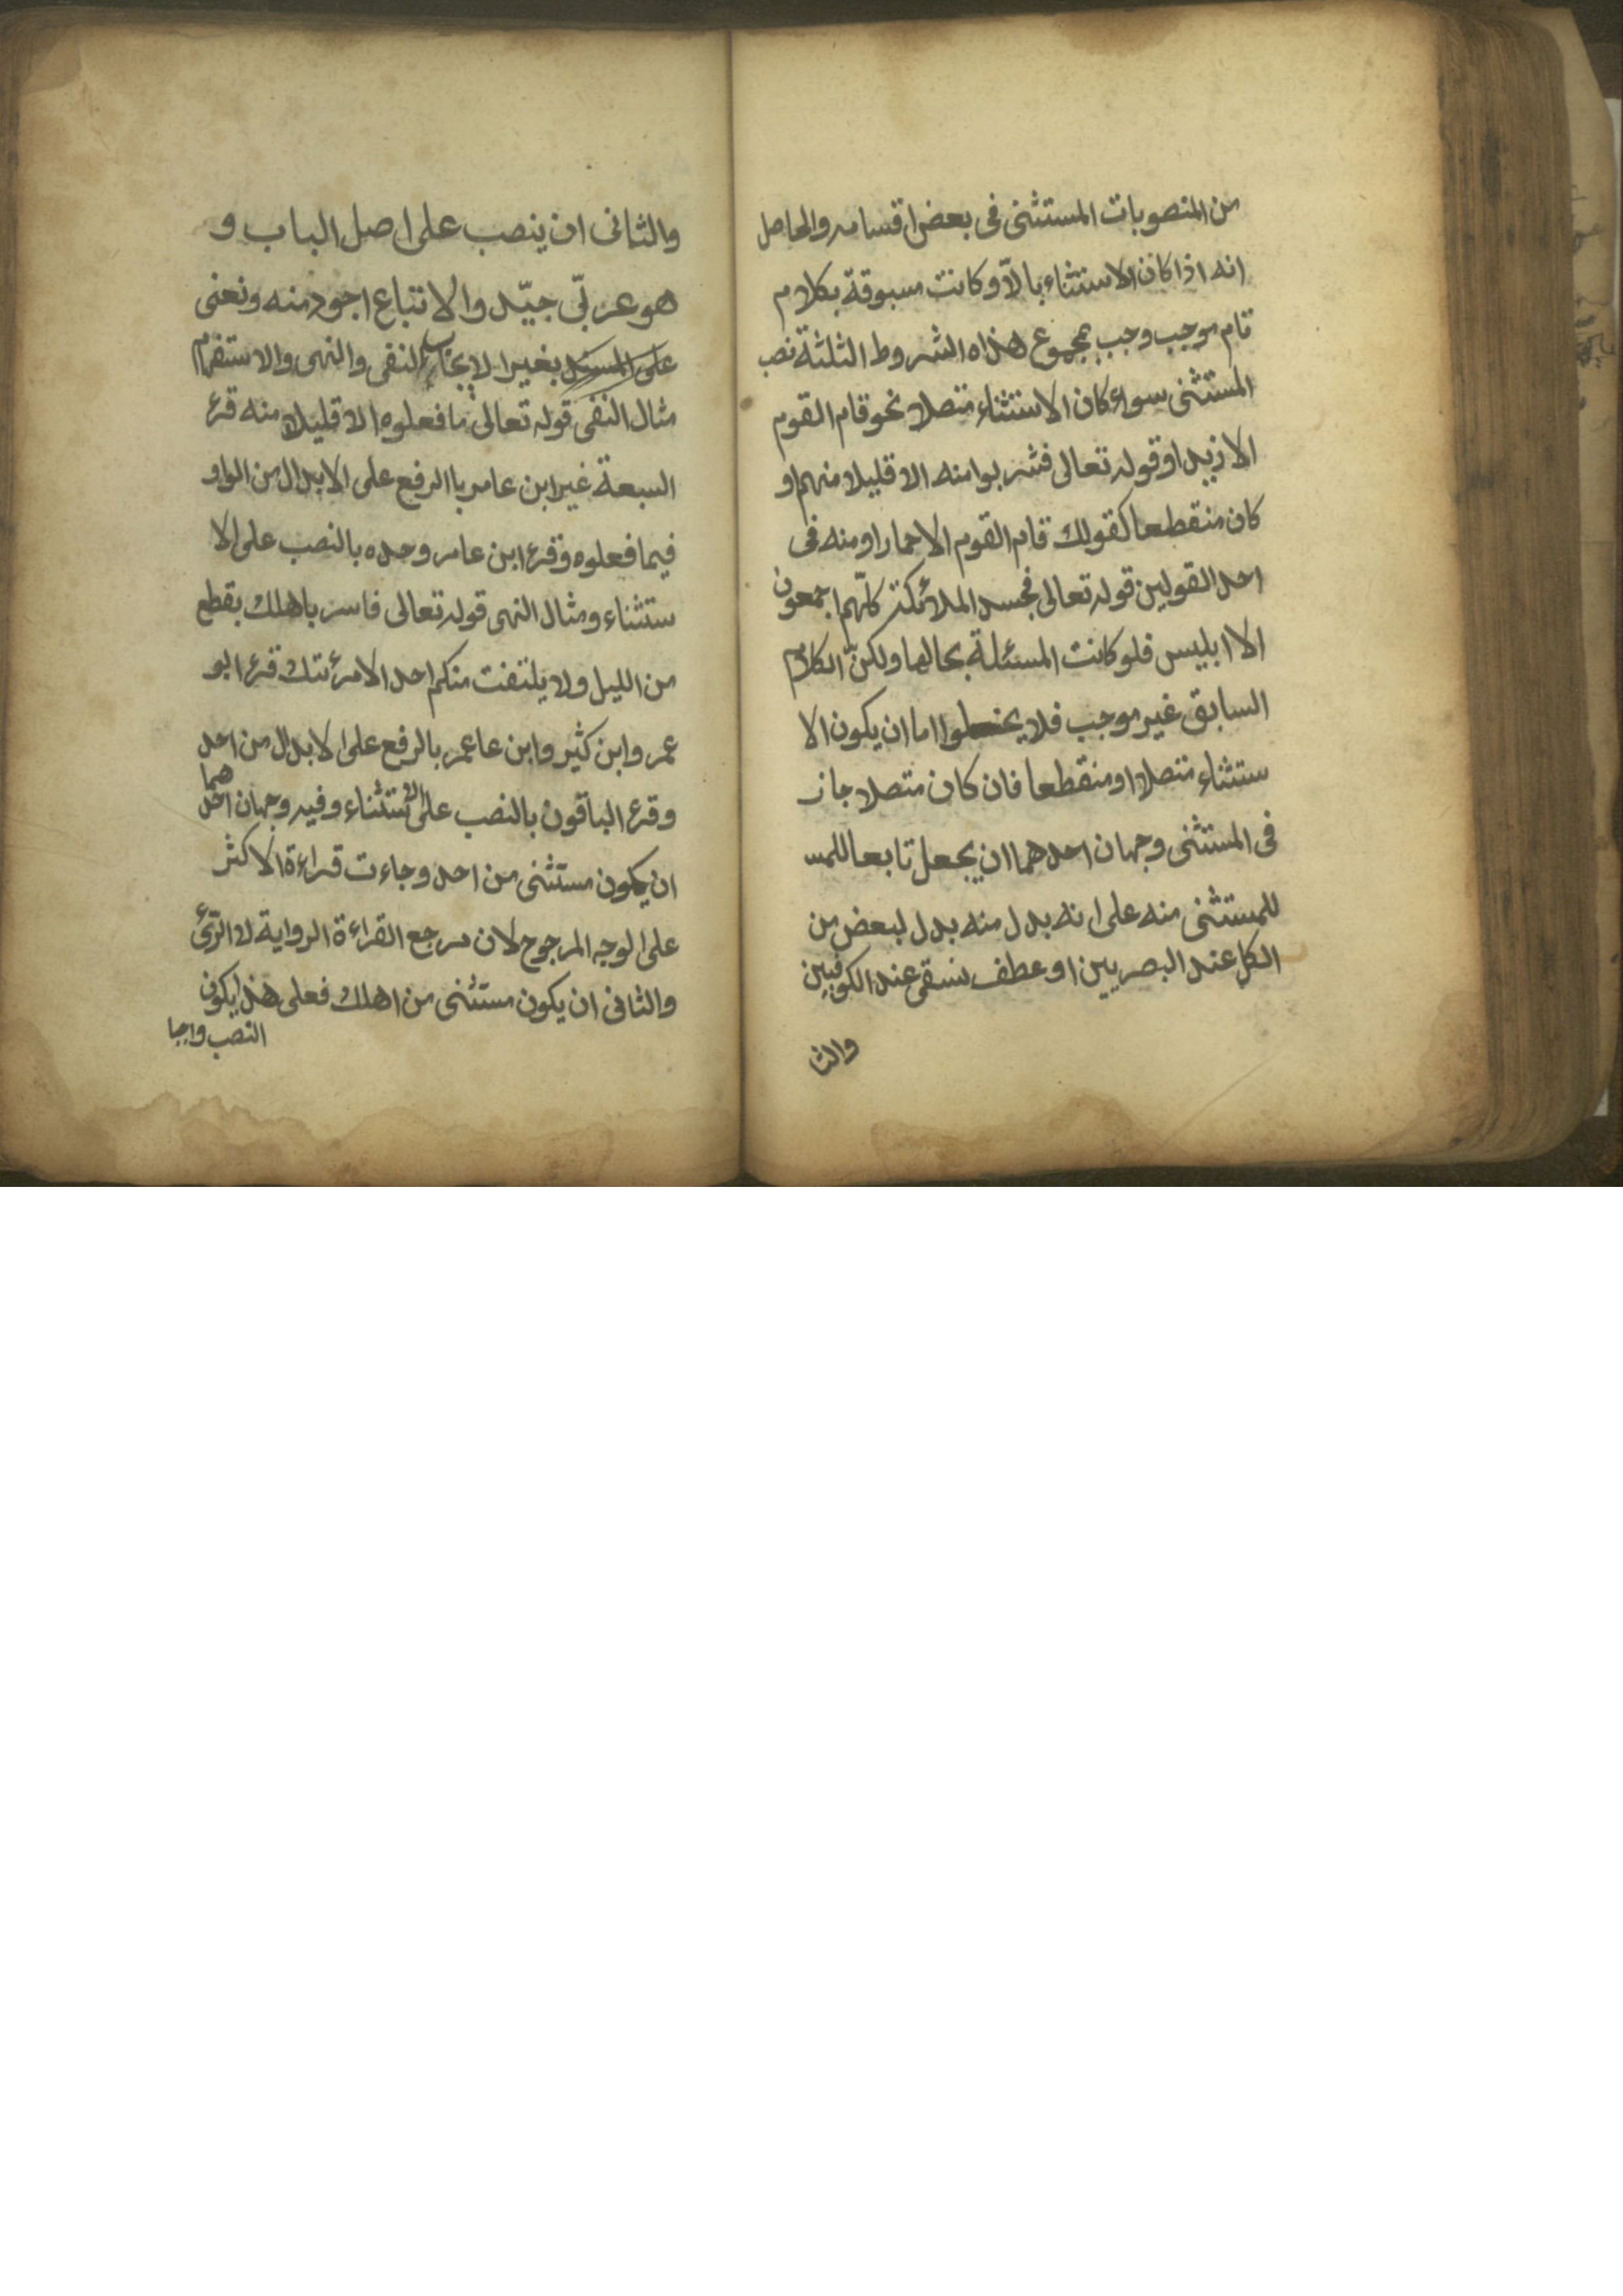 من المنصوبات المستثنى فى بعض اقسامه والحاصل
انه اذا كان الاستثناء بالّا وكانت مسبوقة بكلام
تام موجب وجب بمجموع هذه الشروط الثلثة نصب
المستثنى سواء كان الاستثناء متصلا نحو قام القوم
الا زيدا وقوله تعالى فشربوا منه الا قليلا منهم او
كان منقطعا كقولك قام القوم الا حمارا ومنه فى
احد القولين قوله تعالى فسجد الملائكة كلّهم اجمعون
الا ابليس فلو كانت المسئلة بحالها ولكنّ الكلام
السابق غير موجب فلا يخلوا اما ان يكون الا
ستثناء متصلا او منقطعا فان كان متصلا جاز
فى المستثنى وجهان احدهما ان يجعل تابعا للمس
للمستثنى منه على انه بدل منه بدل لبعض من
الكل عند البصريين او عطف نسق عند الكوفيين
والثا
والثانى ان ينصب على اصل الباب و
هو عربّى جيّد والاتباع اجود منه ونعنى
بغير الايجاب النفى والنهى والاستفهام
مثال النفى قوله تعالى ما فعلوه الا قليلا منه قرء
السبعة غير ابن عامر باالرفع على الابدال من الواو
فيما فعلوه وقرء ابن عامر وحده بالنصب على الا
ستثناء ومثال النهى قوله تعالى فاسر باهلك بقطع
من الليل ولا يلتفت منكم احد الا امرئتك قرء ابو
عمر وابن كثير وابن عاعمر بالرفع على الابدال من احد
وقرء الباقون بالنصب على الاستثناء وفيه وجهان احدهما
ان يكون مستثنى من احد وجاءت قراءة الاكثر
على الوجه المرجوح لان مرجع القراءة الرواية لا الرّئى
والثانى ان يكون مستثنى من اهلك فعلى هذا يكون
النصب واجبا